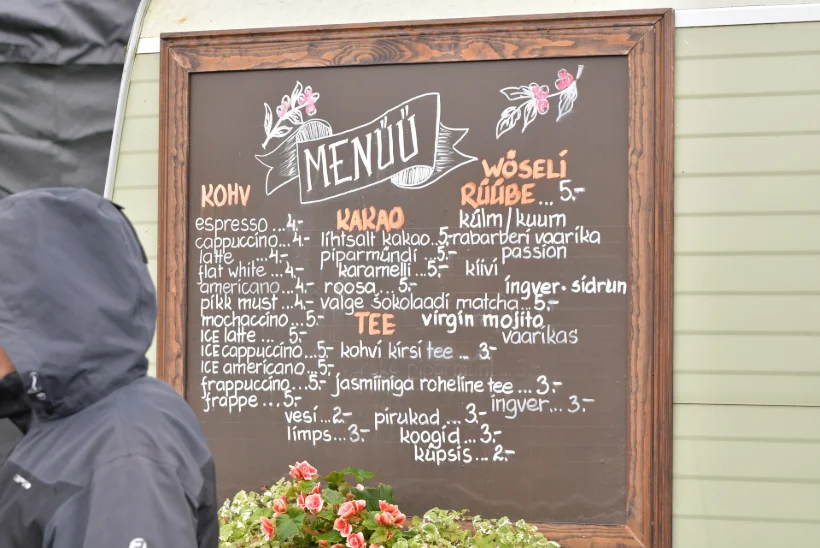 MENÜÜ
KOHV
espresso...4.-
cappuccino...4.-
latte ....4.-
flat white...4.-
americano...4.-
pikk must...4.-
mochaccino...5.-
ICE latte ... 5.-
ICE cappuccino...5.-
ICE americano...5.-
frappuccino...5.-
frappe ....5.-
KAKAO
lihtsalt kakao..5.-
piparmündi ...5.-
karamelli...5.-
roosa...5.-
valge šokolaadi matcha...5.-
TEE
kohvi kirsi tee ... 3.-
jasmiiniga roheline tee ... 3.-
ingver... 3.-
WÕSELI
RÜÜBE... 5.-
külm/kuum
rabarberi vaarika
passion
kiivi
ingver-sidrun
virgin mojito
vaarikas
vesi...2.-
limps...3.-
pirukad ...3.-
koogid...3.-
küpsis... 2.-